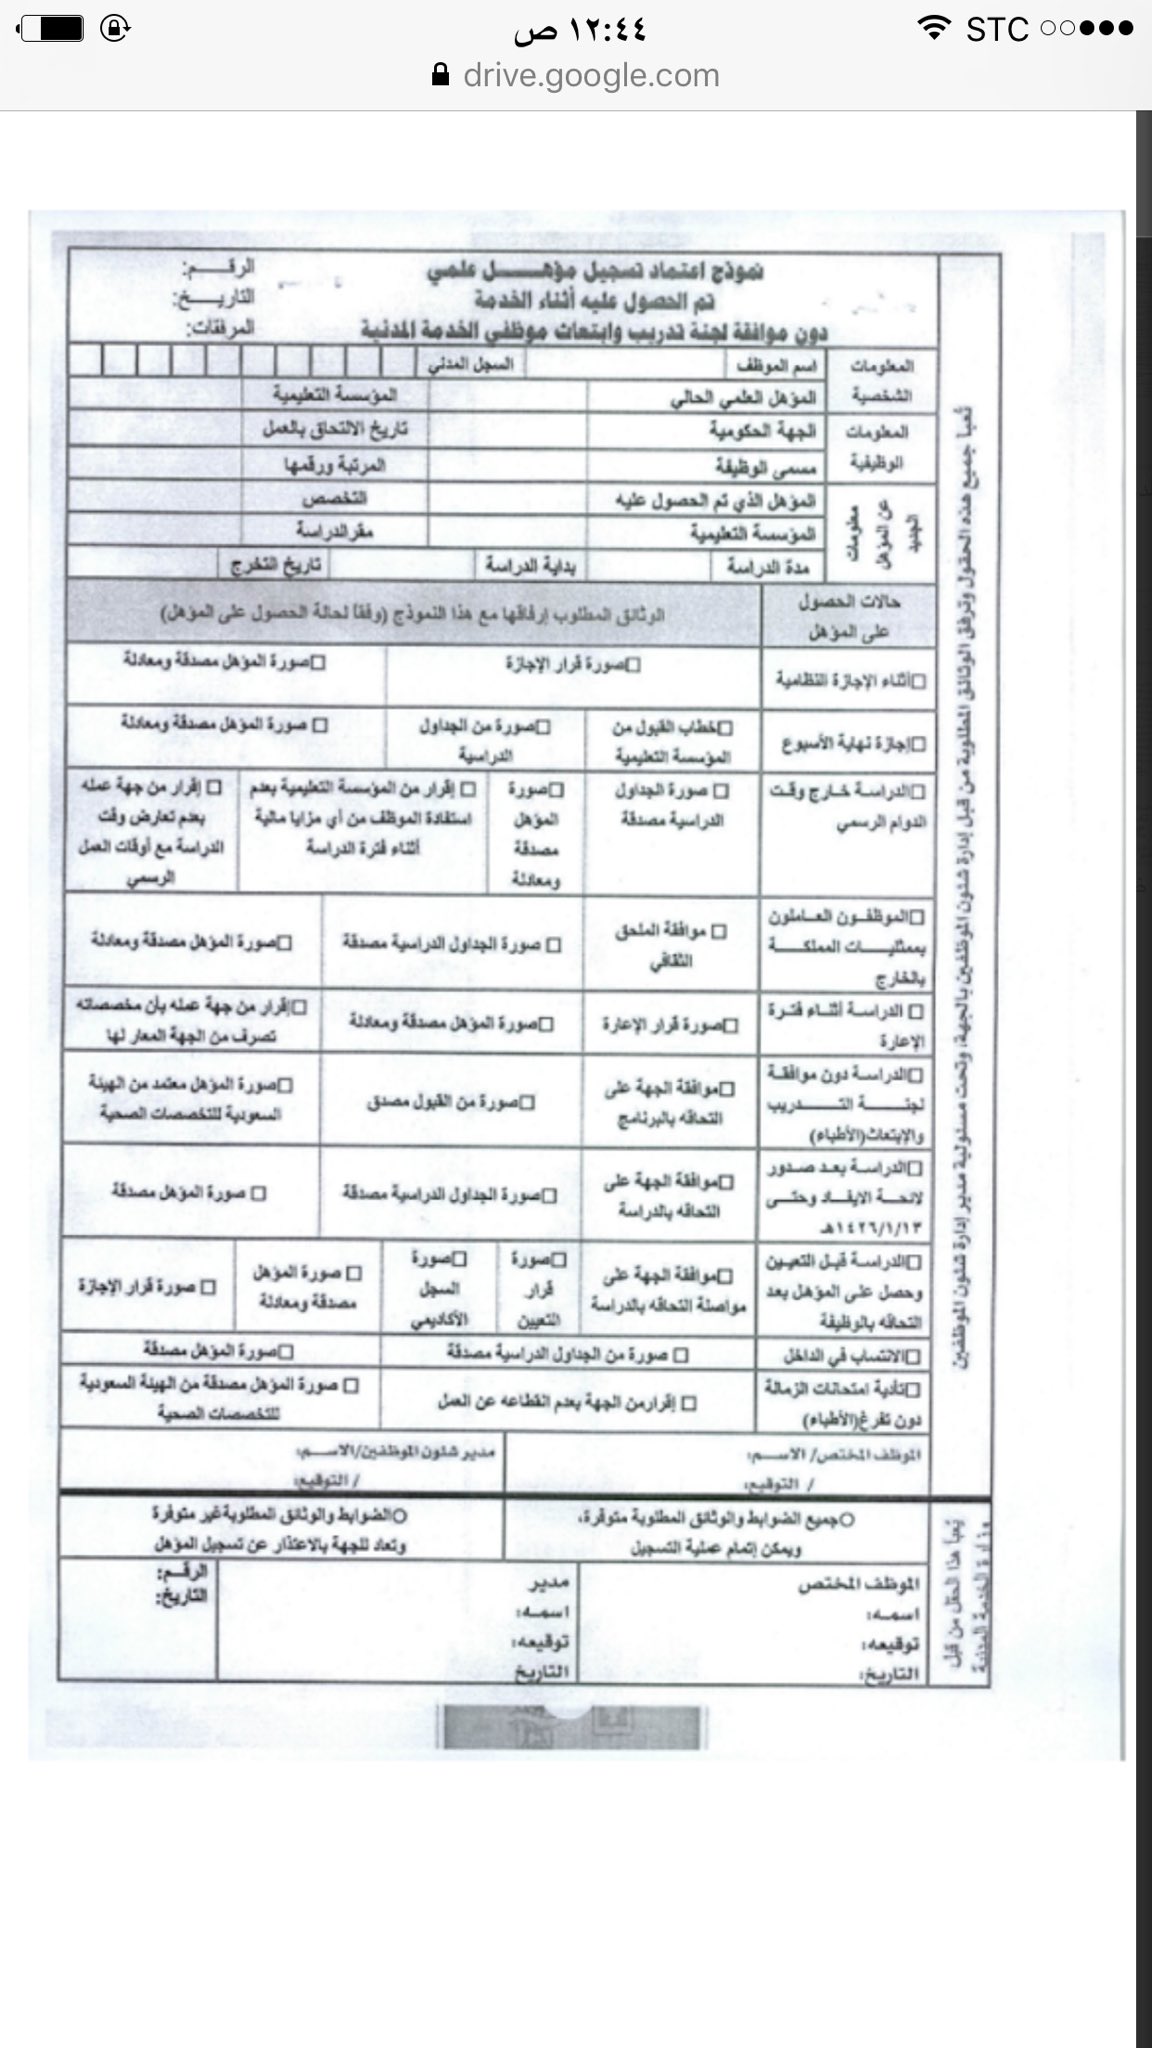 ١٢:٤٤ ص
STC
drive.google.com
نموذج اعتماد تسجيل مؤهـــــل علمي
تم الحصول عليه أثناء الخدمة
دون موافقة لجنة تدريب وابتعاث موظفي الخدمة المدنية
الرقــــم:
التاريــــخ:
المرفقات:
تعبأ جميع هذه الحقول وترفق الوثائق المطلوبة من قبل إدارة شئون الموظفين بالجهة، وتحت مسئولية مدير إدارة شئون الموظفين
المعلومات الشخصية
اسم الموظف
السجل المدني
المؤهل العلمي الحالي
المؤسسة التعليمية
المعلومات الوظيفية
الجهة الحكومية
تاريخ الالتحاق بالعمل
مسمى الوظيفة
المرتبة ورقمها
معلومات عن المؤهل الجديد
المؤهل الذي تم الحصول عليه
التخصص
المؤسسة التعليمية
مقر الدراسة
مدة الدراسة
بداية الدراسة
تاريخ التخرج
حالات الحصول على المؤهل
الوثائق المطلوب إرفاقها مع هذا النموذج (وفقا لحالة الحصول على المؤهل)
□أثناء الإجازة النظامية
□صورة قرار الإجازة
□صورة المؤهل مصدقة ومعادلة
□إجازة نهاية الأسبوع
□خطاب القبول من المؤسسة التعليمية
□صورة من الجداول الدراسية
□ صورة المؤهل مصدقة ومعادلة
□الدراسة خارج وقت الدوام الرسمي
□ صورة الجداول الدراسية مصدقة
□صورة المؤهل مصدقة ومعادلة
□ إقرار من المؤسسة التعليمية بعدم استفادة الموظف من أي مزايا مالية أثناء فترة الدراسة
□ إقرار من جهة عمله بعدم تعارض وقت الدراسة مع أوقات العمل الرسمي
□الموظفــون العــاملون بممثليــــات المملكــــة بالخارج
□ موافقة الملحق الثقافي
□ صورة الجداول الدراسية مصدقة
□صورة المؤهل مصدقة ومعادلة
□ الدراسة أثنــاء فتــرة الإعارة
□صورة قرار الإعارة
□صورة المؤهل مصدقة ومعادلة
□إقرار من جهة عمله بأن مخصصاته تصرف من الجهة المعار لها
□الدراسة دون موافقة لجنــــة التــــدريب والإبتعاث(الأطباء)
□موافقة الجهة على التحاقه بالبرنامج
□صورة من القبول مصدق
□صورة المؤهل معتمد من الهيئة السعودية للتخصصات الصحية
□الدراسة بعد صدور لائحـة الايفـاد وحتـى ١٤٢٦/١/١٣هـ
□موافقة الجهة على التحاقه بالدراسة
□صورة الجداول الدراسية مصدقة
□ صورة المؤهل مصدقة
□الدراسة قبـل التعيـين وحصل على المؤهل بعد التحاقه بالوظيفة
□موافقة الجهة على مواصلة التحاقه بالدراسة
□صورة قرار التعيين
□صورة السجل الأكاديمي
□ صورة المؤهل مصدقة ومعادلة
□ صورة قرار الإجازة
□الانتساب في الداخل
□ صورة من الجداول الدراسية مصدقة
□صورة المؤهل مصدقة
□تأدية امتحانات الزمالة دون تفرغ(الأطباء)
□ إقرارمن الجهة بعدم انقطاعه عن العمل
□ صورة المؤهل مصدقة من الهيئة السعودية للتخصصات الصحية
الموظف المختص/ الاســم:
/ التوقيع:
مدير شئون الموظفين/الاســم:
/ التوقيع:
يُعبأ هذا الحقل من قبل وزارة الخدمة المدنية
○جميع الضوابط والوثائق المطلوبة متوفرة، ويمكن إتمام عملية التسجيل
○الضوابط والوثائق المطلوبة غير متوفرة وتعاد للجهة بالاعتذار عن تسجيل المؤهل
الموظف المختص
اسمــه:
توقيعه:
التاريخ:
مدير
اسمــه:
توقيعه:
التاريخ
الرقـم:
التاريخ: